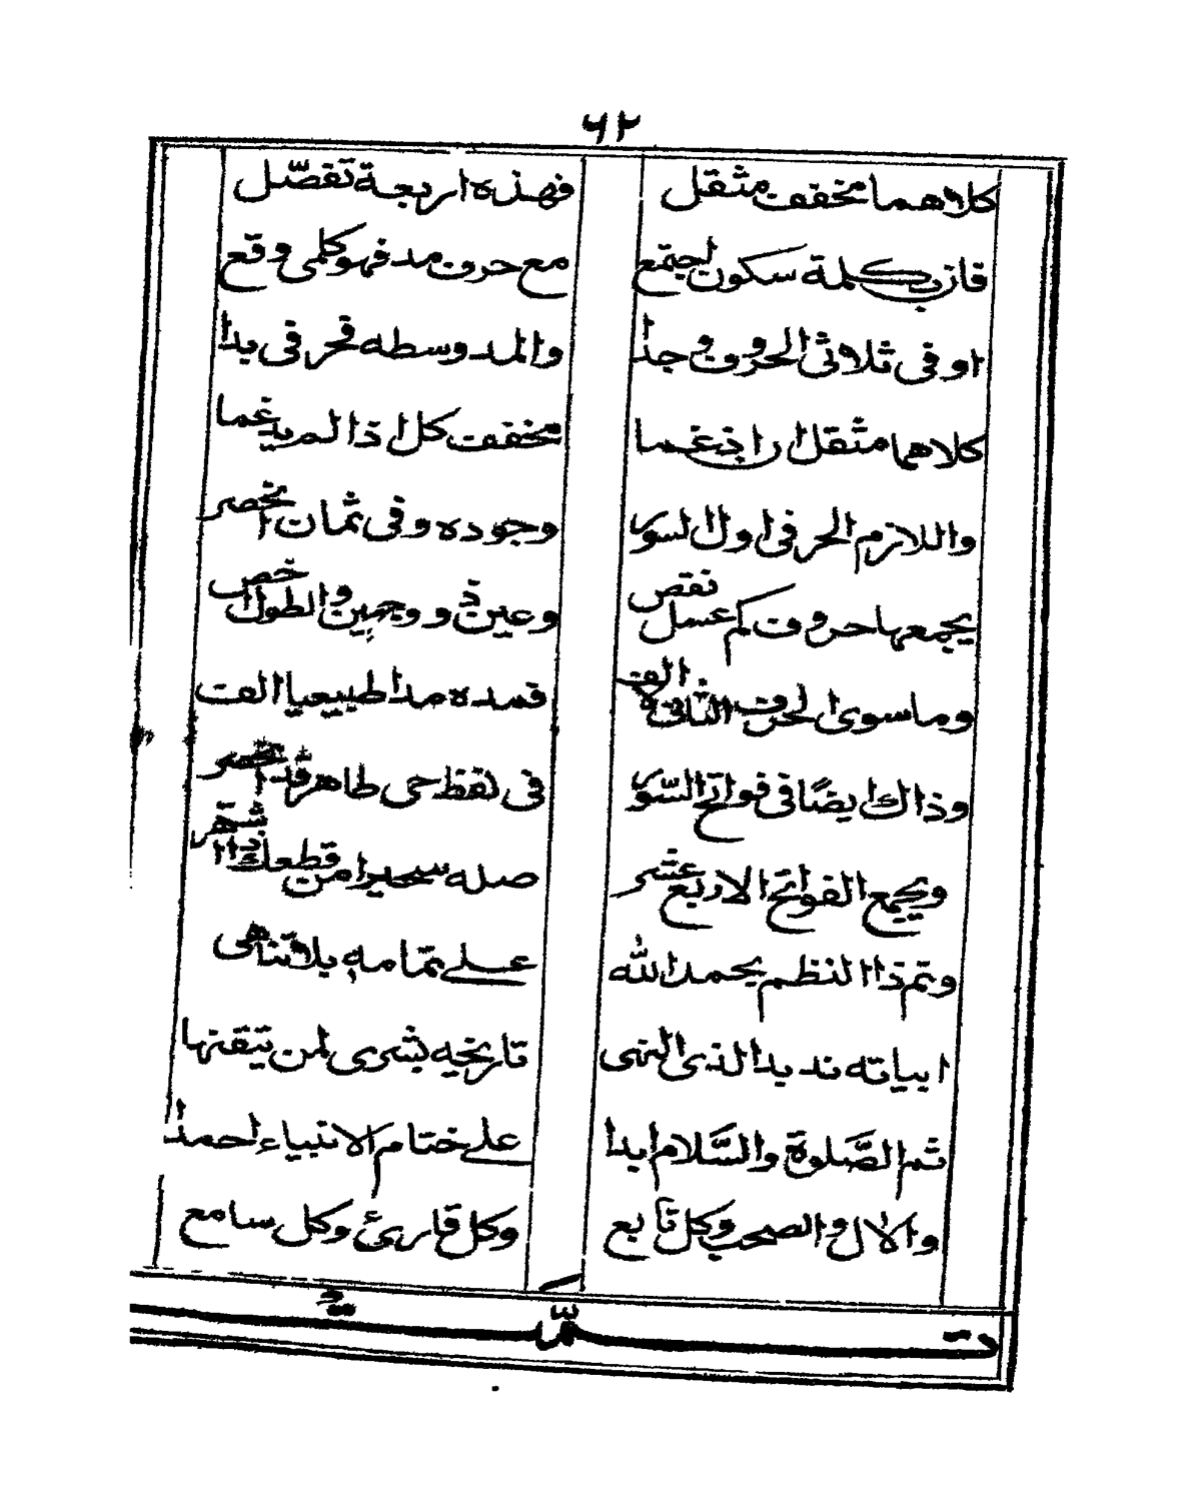 ٦٢
كلاهما مخفف مثقل فهذه اربعة تفصّل
فان بكلمة سكون اجتمع مع حرف مد فهو كلمى وقع
او فى ثلاثى الحروف وجدا والمد وسطه فحرفى بدا
كلاهما مثقل ان ادغما مخفف كل اذا لم يدغما
واللازم الحرفى اول السور وجوده وفى ثمان انحصر
يجمعها حروف كم عسل نقص وعين ذو وجهين والطول اخص
وما سوى الحرف الثلاثى لا الف فمده مدا طبيعيا الف
وذاك ايضًا فى فواتح السّور فى لفظ حى طاهر قد انحصر
ويجمع الفواتح الاربع عشر صله سحيرا من قطعك ذا اشتهر
وتم ذا النظم بحمد الله على تمامه بلا تناهى
ابياته ند بدا لذى النهى تاريخه بشرى لمن يتقنها
ثم الصّلوة والسّلام ابدا على ختام الانبياء احمدا
والال والصحب وكل تابع وكل قارئ وكل سامع
تمّت